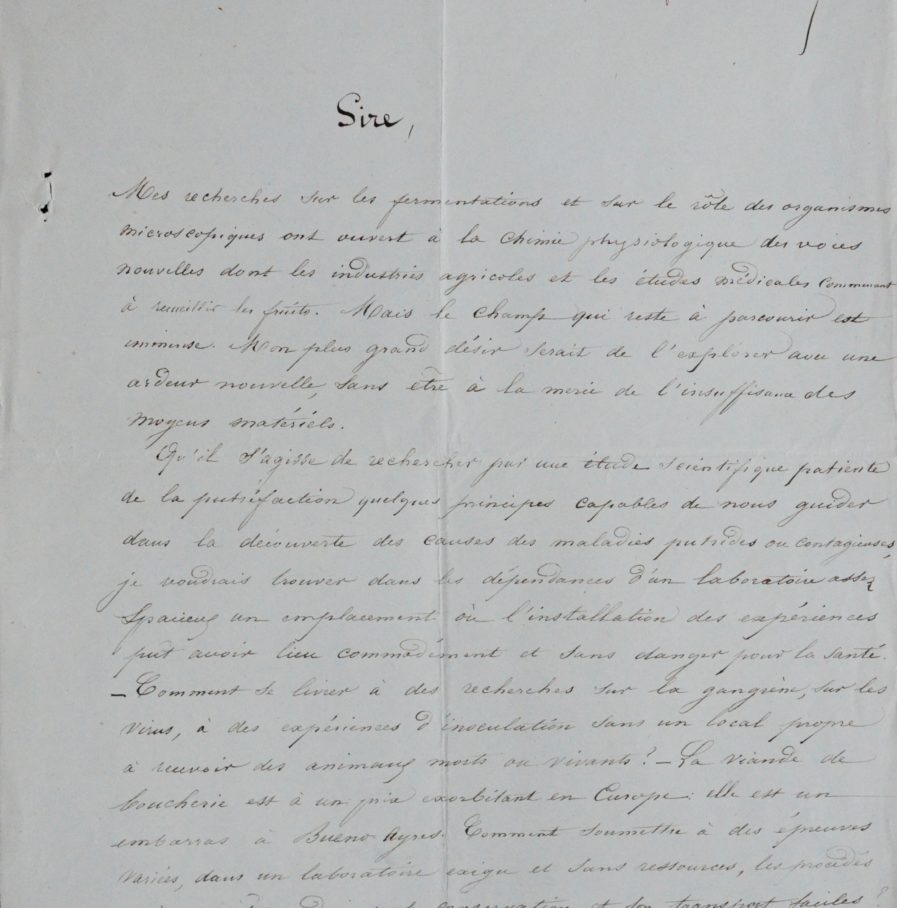 Sire,
Mes recherches sur les fermentations et sur le rôle des organismes
microscopiques ont ouvert à la chimie physiologique des voies
nouvelles dont les industries agricoles et les études médicales commencent
à recueillir les fruits. Mais le champ qui reste à parcourir est
immense. Mon plus grand désir serait de l'explorer avec une
ardeur nouvelle, sans être à la merci de l'insuffisance des
moyens matériels.
Qu'il s'agisse de rechercher par une étude scientifique patiente
de la putréfaction quelques principes capables de nous guider
dans la découverte des causes des maladies putrides ou contagieuses,
je voudrais trouver dans les dépendances d'un laboratoire assez
spacieux un emplacement où l'installation des expériences
put avoir lieu commodément et sans danger pour la santé.
– Comment se livrer à des recherches sur la gangrène, sur les
virus, à des expériences d'inoculation sans un local propre
à recevoir des animaux morts ou vivants? – La viande de
boucherie est à un prix exorbitant en Europe: elle est un
embarras à Bueno-Ayres. Comment soumettre à des épreuves
variées, dans un laboratoire exigu et sans ressources, les procédés
conservation et son transport faciles?